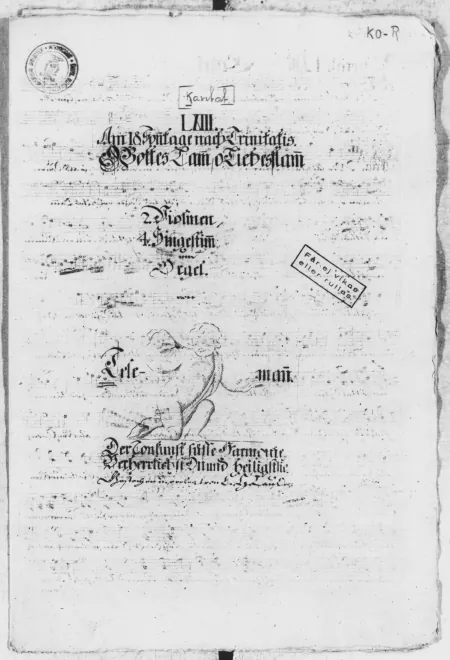 KO-R
Kantat
LXIII
Am 18 Syntage nach Trinitatis.
O Gottes Lam̅, o Liebeslam̅
2. Violinen
4. Singestim̅
und
Orgel.
von
Får ej vikas
eller rullas.
Tele-
man̅.
Der Tonkunst süsse Harmonie
Verherrlichst Du und heiligst sie.